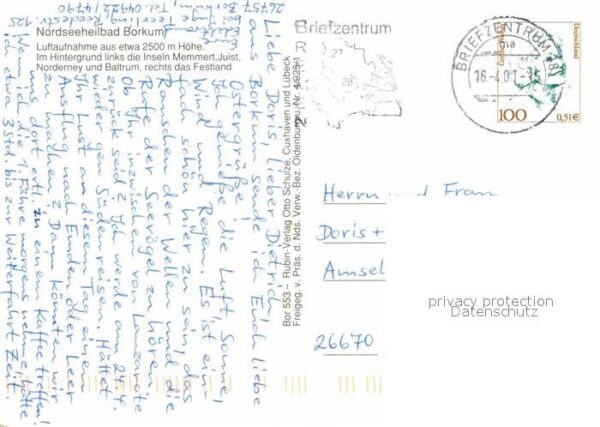 Nordseeheilbad Borkum
Luftaufnahme aus etwa 2500 m Höhe.
Im Hintergrund links die Inseln Memmert, Juist,
Norderney und Baltrum, rechts das Festland
26757 Borkum,
Tel. 04922/4790
Liebe Doris, lieber Dietrich!
Aus Borkum sende ich Euch liebe
Ostergrüße! Die Luft, Sonne,
Wind und Regen. Es ist ein-
fach schön hier zu sein, das
Rauschen der Wellen und die
Rufe der Seevögel zu hören.
Ihr inzwischen von Lanzarote
zurück seid? Ich werde am 24.4.
wieder gen Süden reisen. Hättet
Ihr Lust an diesem Tag einen
Ausflug nach Emden oder Leer
zu machen? Dann könnten wir
uns dort evtl. zu einem Kaffee treffen!
Wenn ich die 1. Fähre morgens nehme, hätte
ich etwa 3 Std. bis zur Weiterfahrt Zeit.
Bor 553 – Rubin-Verlag Otto Schulze, Cuxhaven und Lübeck
Freigeg. v. Präs. d. Nds. Verw.-Bez. Oldenburg
Briefzentrum
27
28
BRIEFZENTRUM
16.-4.01
Deutschland
100
0,51€
Herrn und Frau
Doris +
Amsel
26670
privacy protection
Datenschutz